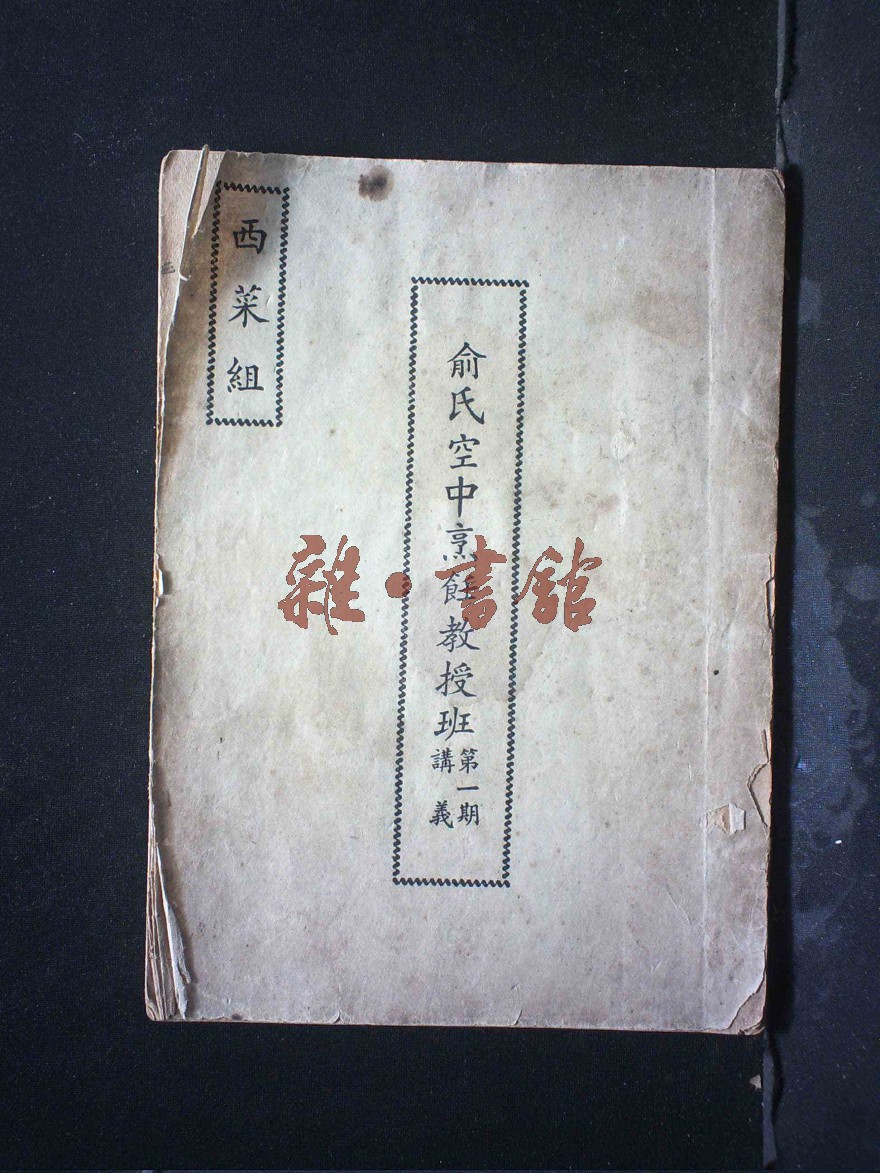 俞氏空中烹飪教授班
第一期
講義
西菜組
雜·書館